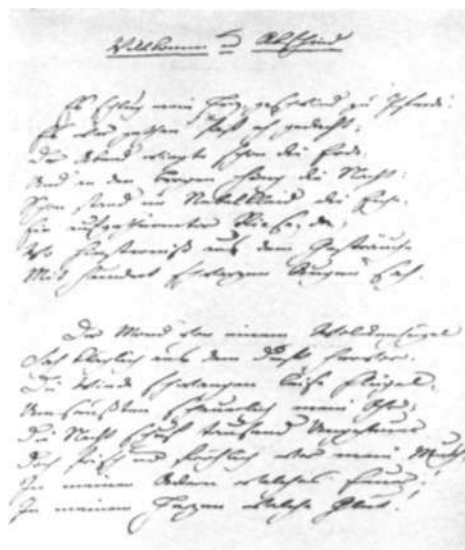 Willkommen und Abschied
Es schlug mein Herz, geschwind zu Pferde!
Es war gethan fast eh gedacht;
Der Abend wiegte schon die Erde,
Und an den Bergen hing die Nacht:
Schon stand im Nebelkleid die Eiche,
Ein aufgethürmter Riese, da,
Wo Finsterniß aus dem Gesträuche
Mit hundert schwarzen Augen sah.
Der Mond von einem Wolkenhügel
Sah kläglich aus dem Duft hervor,
Die Winde schwangen leise Flügel,
Umsaus'ten schauerlich mein Ohr;
Die Nacht schuf tausend Ungeheuer
Doch frisch und fröhlich war mein Muth
In meinen Adern welches Feuer!
In meinem Herzen welche Glut!